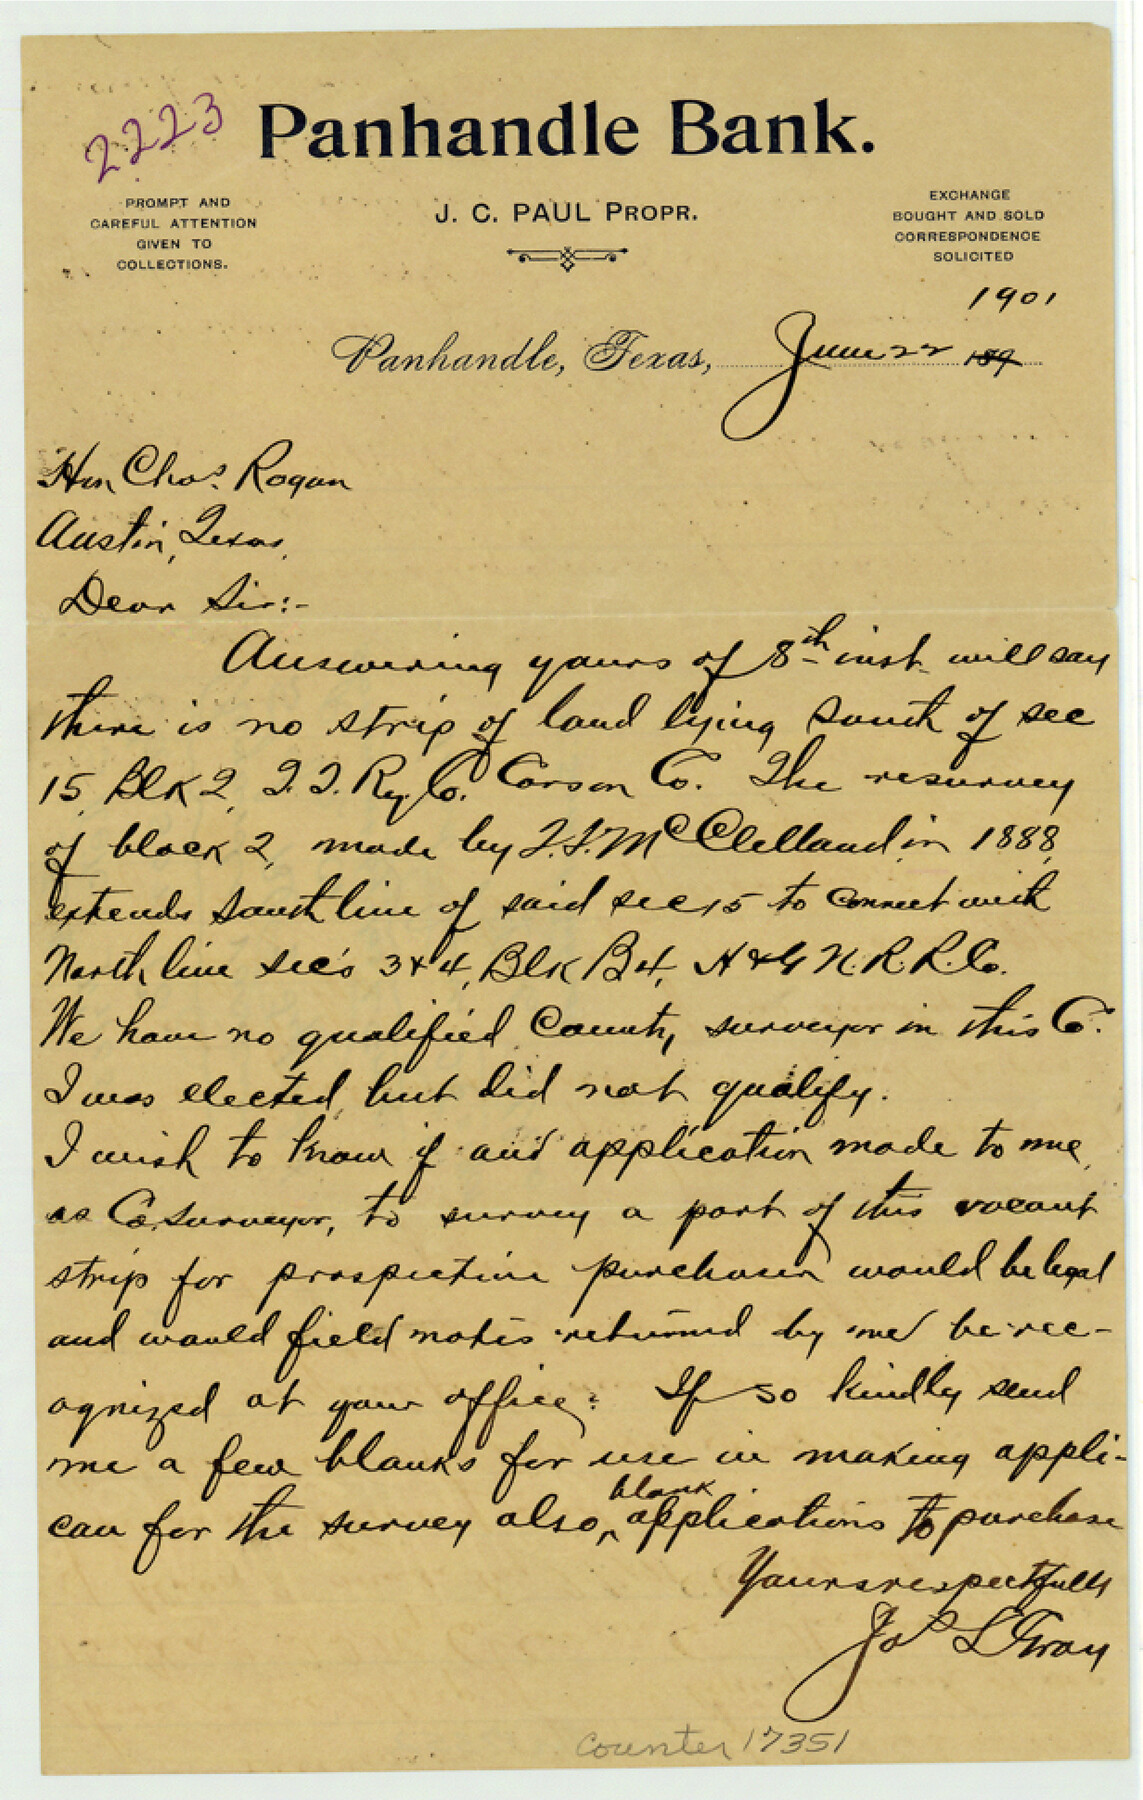 2223
Panhandle Bank.
PROMPT AND
CAREFUL ATTENTION
GIVEN TO
COLLECTIONS.
J. C. PAUL PROPR.
EXCHANGE
BOUGHT AND SOLD
CORRESPONDENCE
SOLICITED
1901
Panhandle, Texas, June 22 189
Hon Chas. Rogan
Austin, Texas,
Dear Sir:-
Answering yours of 8th inst will say
there is no strip of land lying South of sec
15, Blk 2, T.T. Ry. Co. Carson Co. The resurvey
of block 2, made by T.S. McClelland in 1888,
extends South line of said sec 15 to connect with
North line sec's 3 & 4, Blk B4, H & G N. R. R. Co.
We have no qualified County surveyor in this Co.
I was elected, but did not qualify.
I wish to know if and application made to me,
as Co. surveyor, to survey a part of this vacant
strip for prospective purchaser would be legal
and would field notes returned by me be rec-
ognized at your office? If so kindly send
me a few blanks for use in making appli-
can for the survey also, blank applications to purchase
Yours respectfully
Jos L Gray
Counter 17351